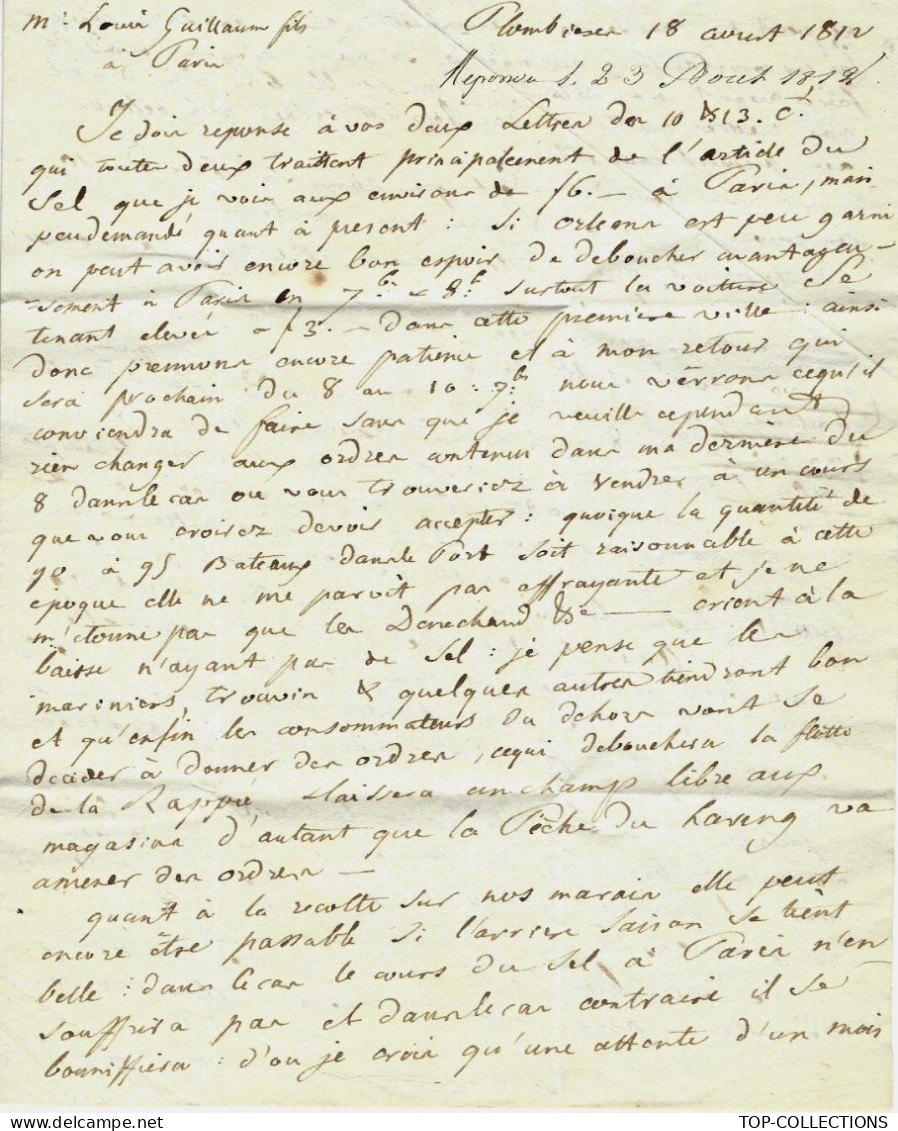 Mr. Louis Guillaume fils
à Paris
Plombieres 18 aoust 1812
Reponse l. 23 Aout 1812.
Je dois reponse à vos deux Lettres des 10 & 13. Ct,
qui toutes deux traittent principalement de l'article du
Sel que je vois aux environs de 56.— à Paris, mais
peu demandé quant à present : Si orleans est peu garni
on peut avoir encore bon espoir de deboucher avantageu-
-sement à Paris en 7bre & 8bre surtout la voiture se
tenant elevée a f3.— dans cette premiere ville : ainsi
donc prennons encore patience et à mon retour qui
sera prochain du 8 au 10 : 7bre nous vérrons cequ'il
conviendra de faire sans que je veuille cependant
rien changer aux ordres contenus dans ma derniere du
8 dansle cas ou vous trouveriez à vendre à un cours
que vous croirez devoir accepter : quoique la quantité de
90 à 95 Bateaux dansle Port soit raisonnable à cette
époque elle ne me paroît pas effrayante et je ne
m'étonne pas que les Denechaud &a — crient à la
baisse n'ayant pas de Sel : je pense que les
mariniers, trouvin & quelques autres tiendront bon
et qu'enfin les consommateurs du dehors vont se
decider à donner des ordres, cequi debouchera la flotte
de la Rappée & laissera unchamp libre aux
magasins d'autant que la Pêche du hareng va
amener des ordres —
quant à la recolte sur nos marais elle peut
encore être passable si l'arriere saison se tient
belle : dans lecas le cours du Sel à Paris n'en
souffrira pas et dansle cas contraire il se
bonniffiera : d'ou je crois qu'une attente d'un mois
TOP-COLLECTIONS